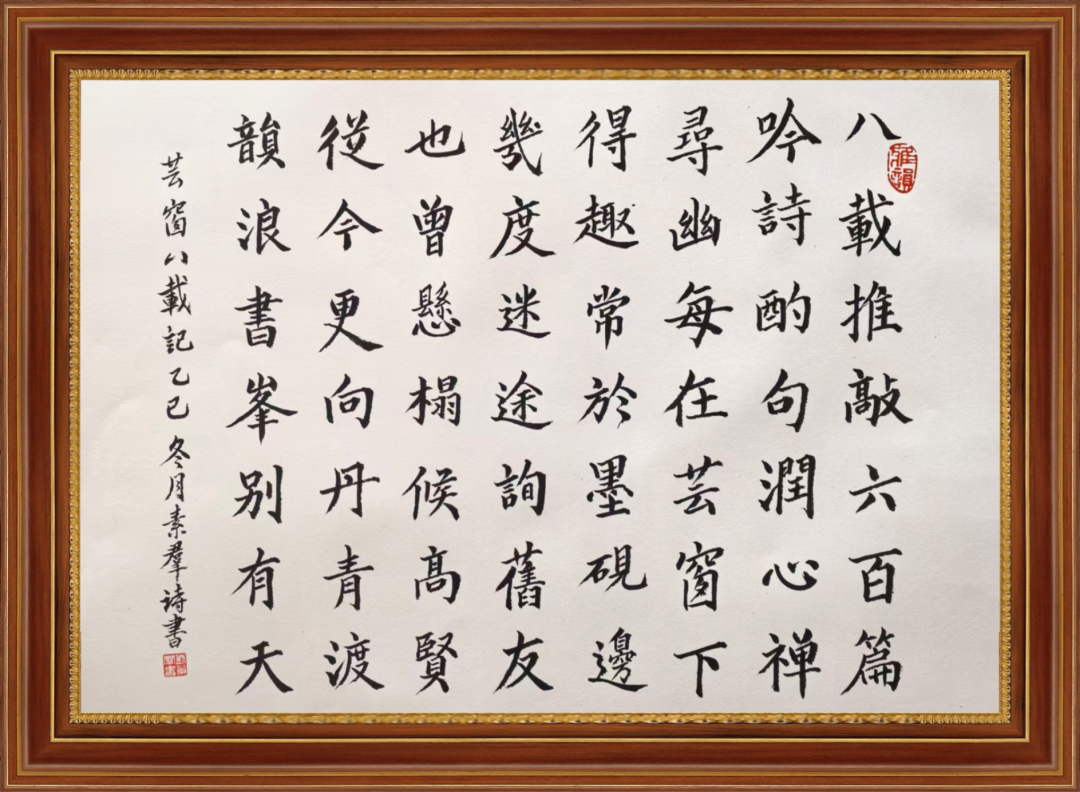 八載推敲六百篇
吟詩酌句潤心禅
尋幽每在芸窗下
得趣常於墨硯邊
幾度迷途詢舊友
也曾懸榻候高賢
從今更向丹青渡
韻浪書峯別有天
芸窗八載記乙巳冬月素群詩書
雅韻